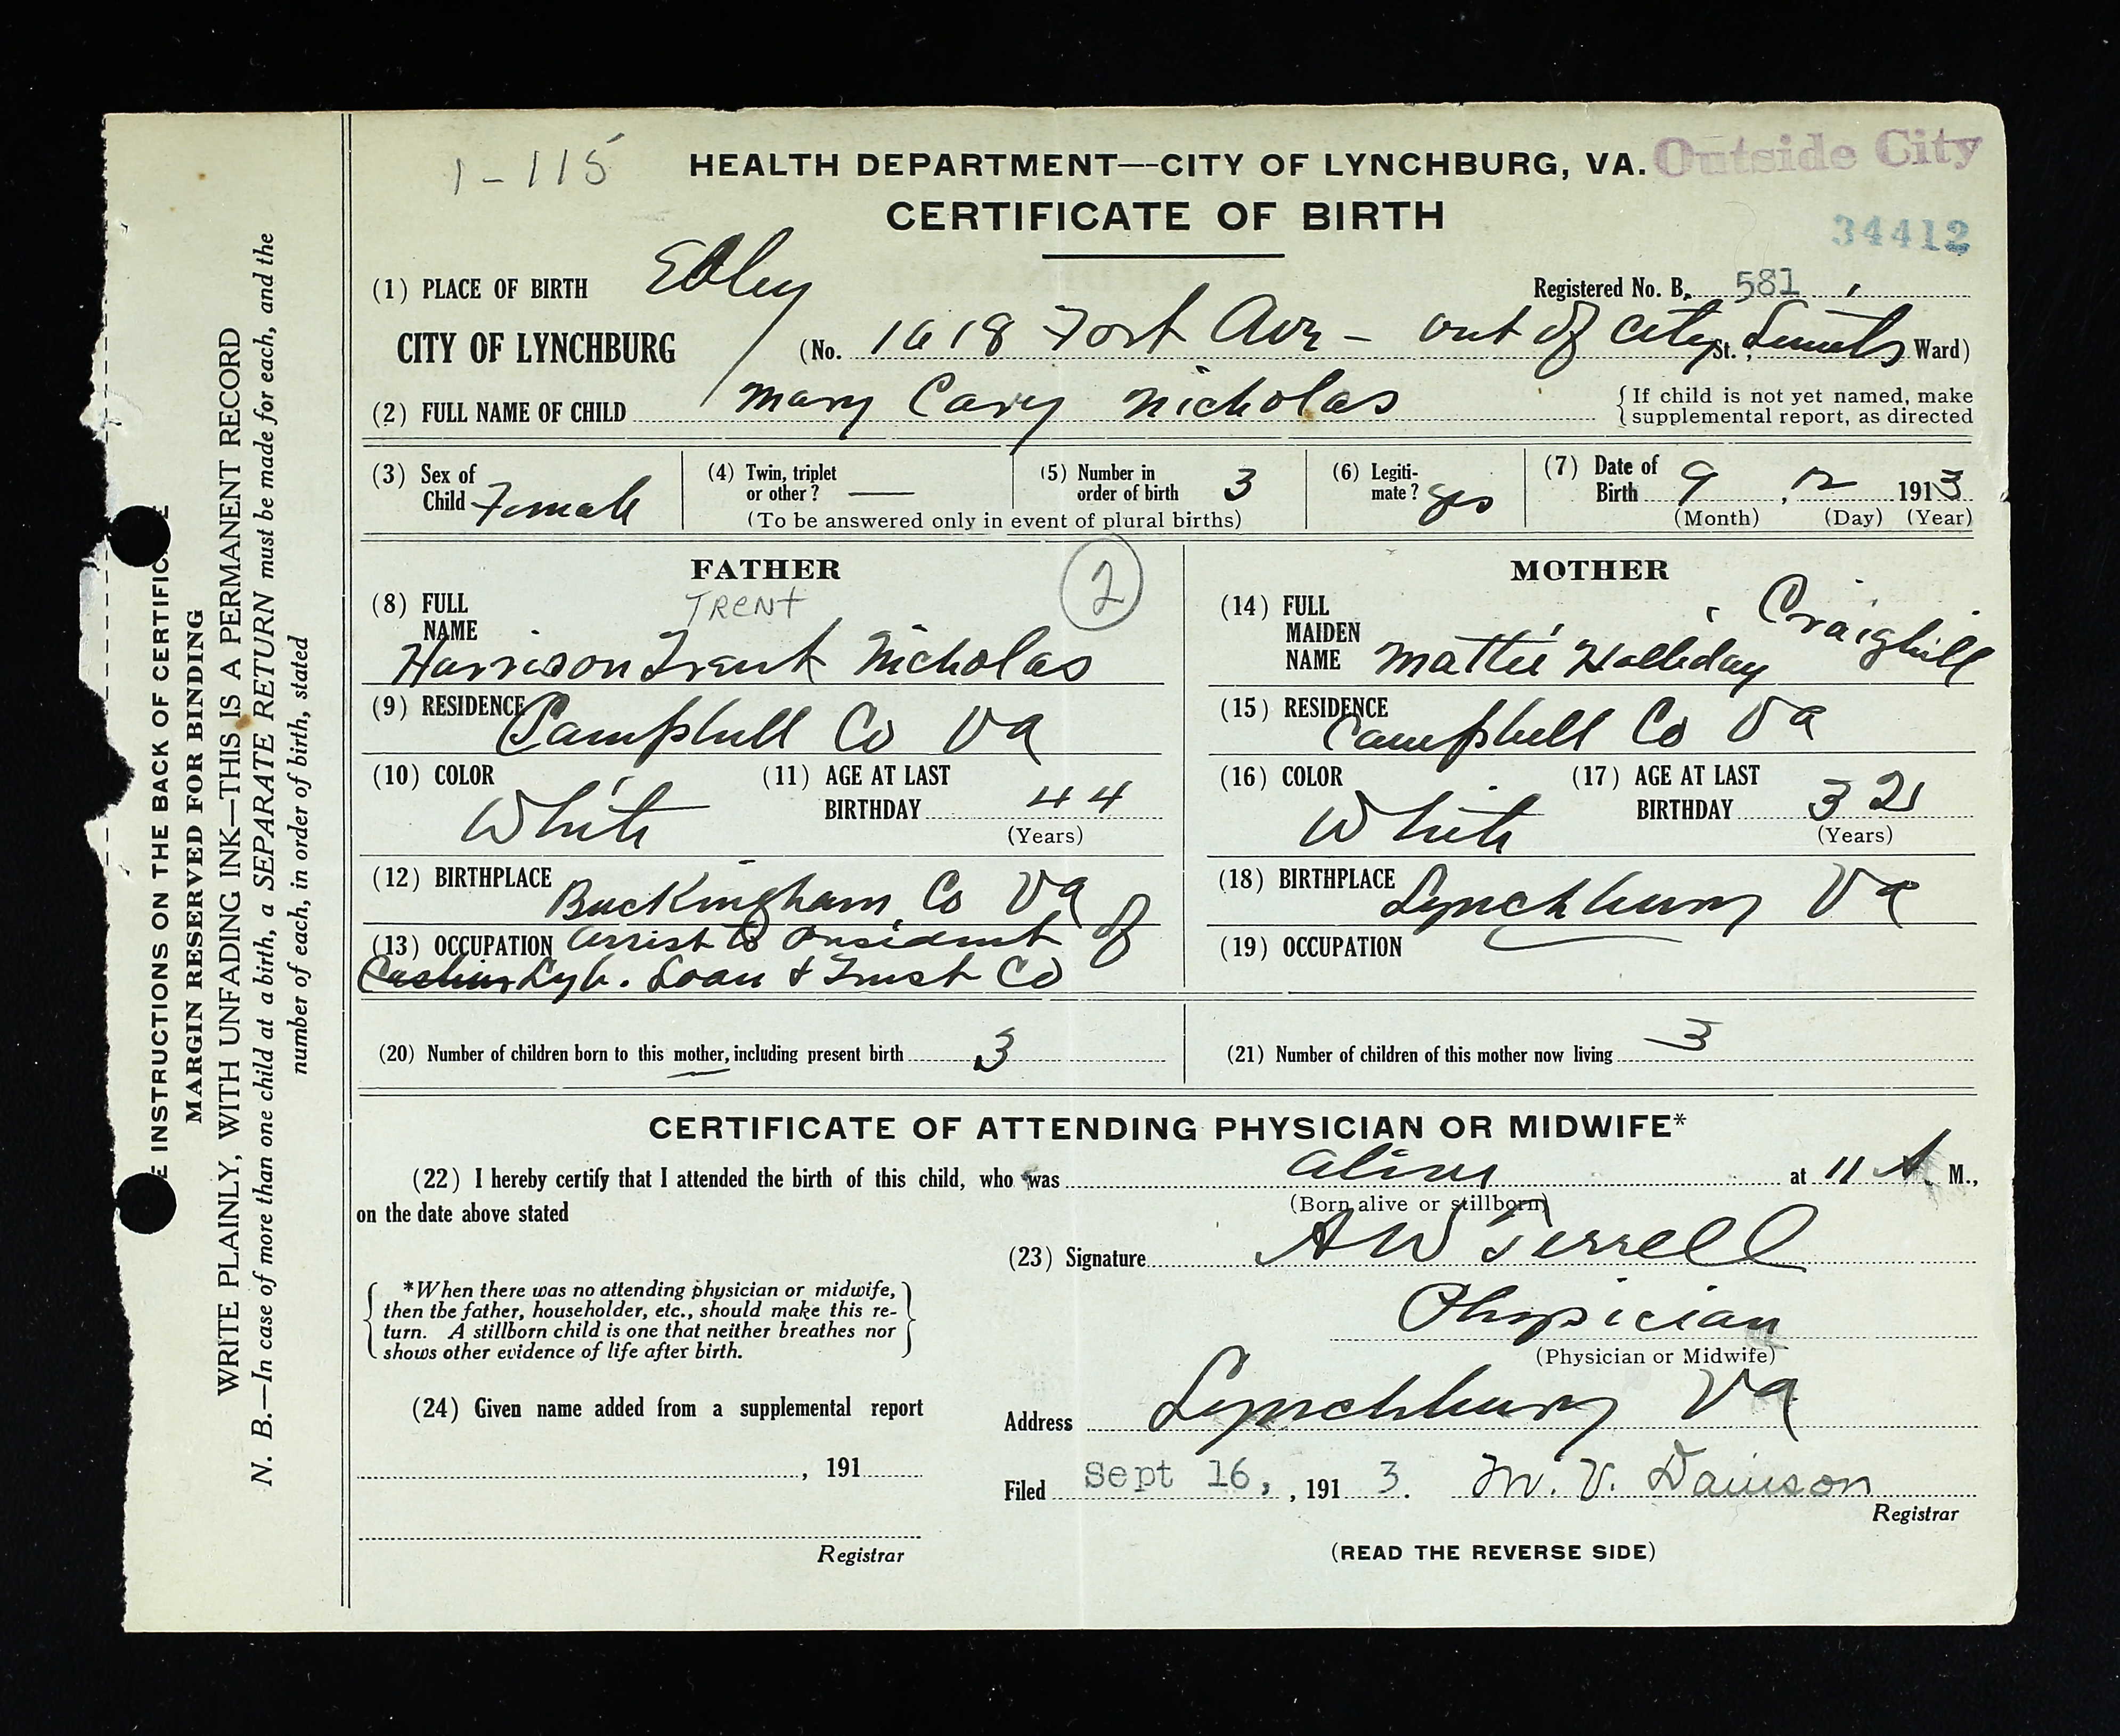 1-115
HEALTH DEPARTMENT—CITY OF LYNCHBURG, VA. Outside City
CERTIFICATE OF BIRTH
34412
(1) PLACE OF BIRTH Edley
Registered No. B. 581
CITY OF LYNCHBURG (No. 1618 Fort Ave - out of City St. Limits Ward)
(2) FULL NAME OF CHILD Mary Cary Nicholas
{If child is not yet named, make
supplemental report, as directed
(3) Sex of Child Female
(4) Twin, triplet or other? —
(5) Number in order of birth 3
(To be answered only in event of plural births)
(6) Legiti-mate? yes
(7) Date of Birth 9, 12 1913
(Month) (Day) (Year)
FATHER
2
TRENT
(8) FULL NAME Harrison Trent Nicholas
(9) RESIDENCE Campbell Co Va
(10) COLOR White
(11) AGE AT LAST BIRTHDAY 44
(Years)
(12) BIRTHPLACE Buckingham Co Va
(13) OCCUPATION Assist to President of
Cashier Lyb. Loan & Trust Co
MOTHER
(14) FULL MAIDEN NAME Mattie Halliday Craighill
(15) RESIDENCE Campbell Co Va
(16) COLOR White
(17) AGE AT LAST BIRTHDAY 32
(Years)
(18) BIRTHPLACE Lynchburg Va
(19) OCCUPATION
(20) Number of children born to this mother, including present birth 3
(21) Number of children of this mother now living 3
CERTIFICATE OF ATTENDING PHYSICIAN OR MIDWIFE*
(22) I hereby certify that I attended the birth of this child, who was alive at 11 A M.,
(Born alive or stillborn)
on the date above stated
(23) Signature A W Terrell
Physician
(Physician or Midwife)
*When there was no attending physician or midwife,
then the father, householder, etc., should make this re-
turn. A stillborn child is one that neither breathes nor
shows other evidence of life after birth.
Address Lynchburg Va
(24) Given name added from a supplemental report
, 191
Filed Sept 16, , 191 3. M. V. Davison
Registrar
Registrar
(READ THE REVERSE SIDE)
E INSTRUCTIONS ON THE BACK OF CERTIFIC E
MARGIN RESERVED FOR BINDING
WRITE PLAINLY, WITH UNFADING INK—THIS IS A PERMANENT RECORD
N. B.—In case of more than one child at a birth, a SEPARATE RETURN must be made for each, and the
number of each, in order of birth, stated